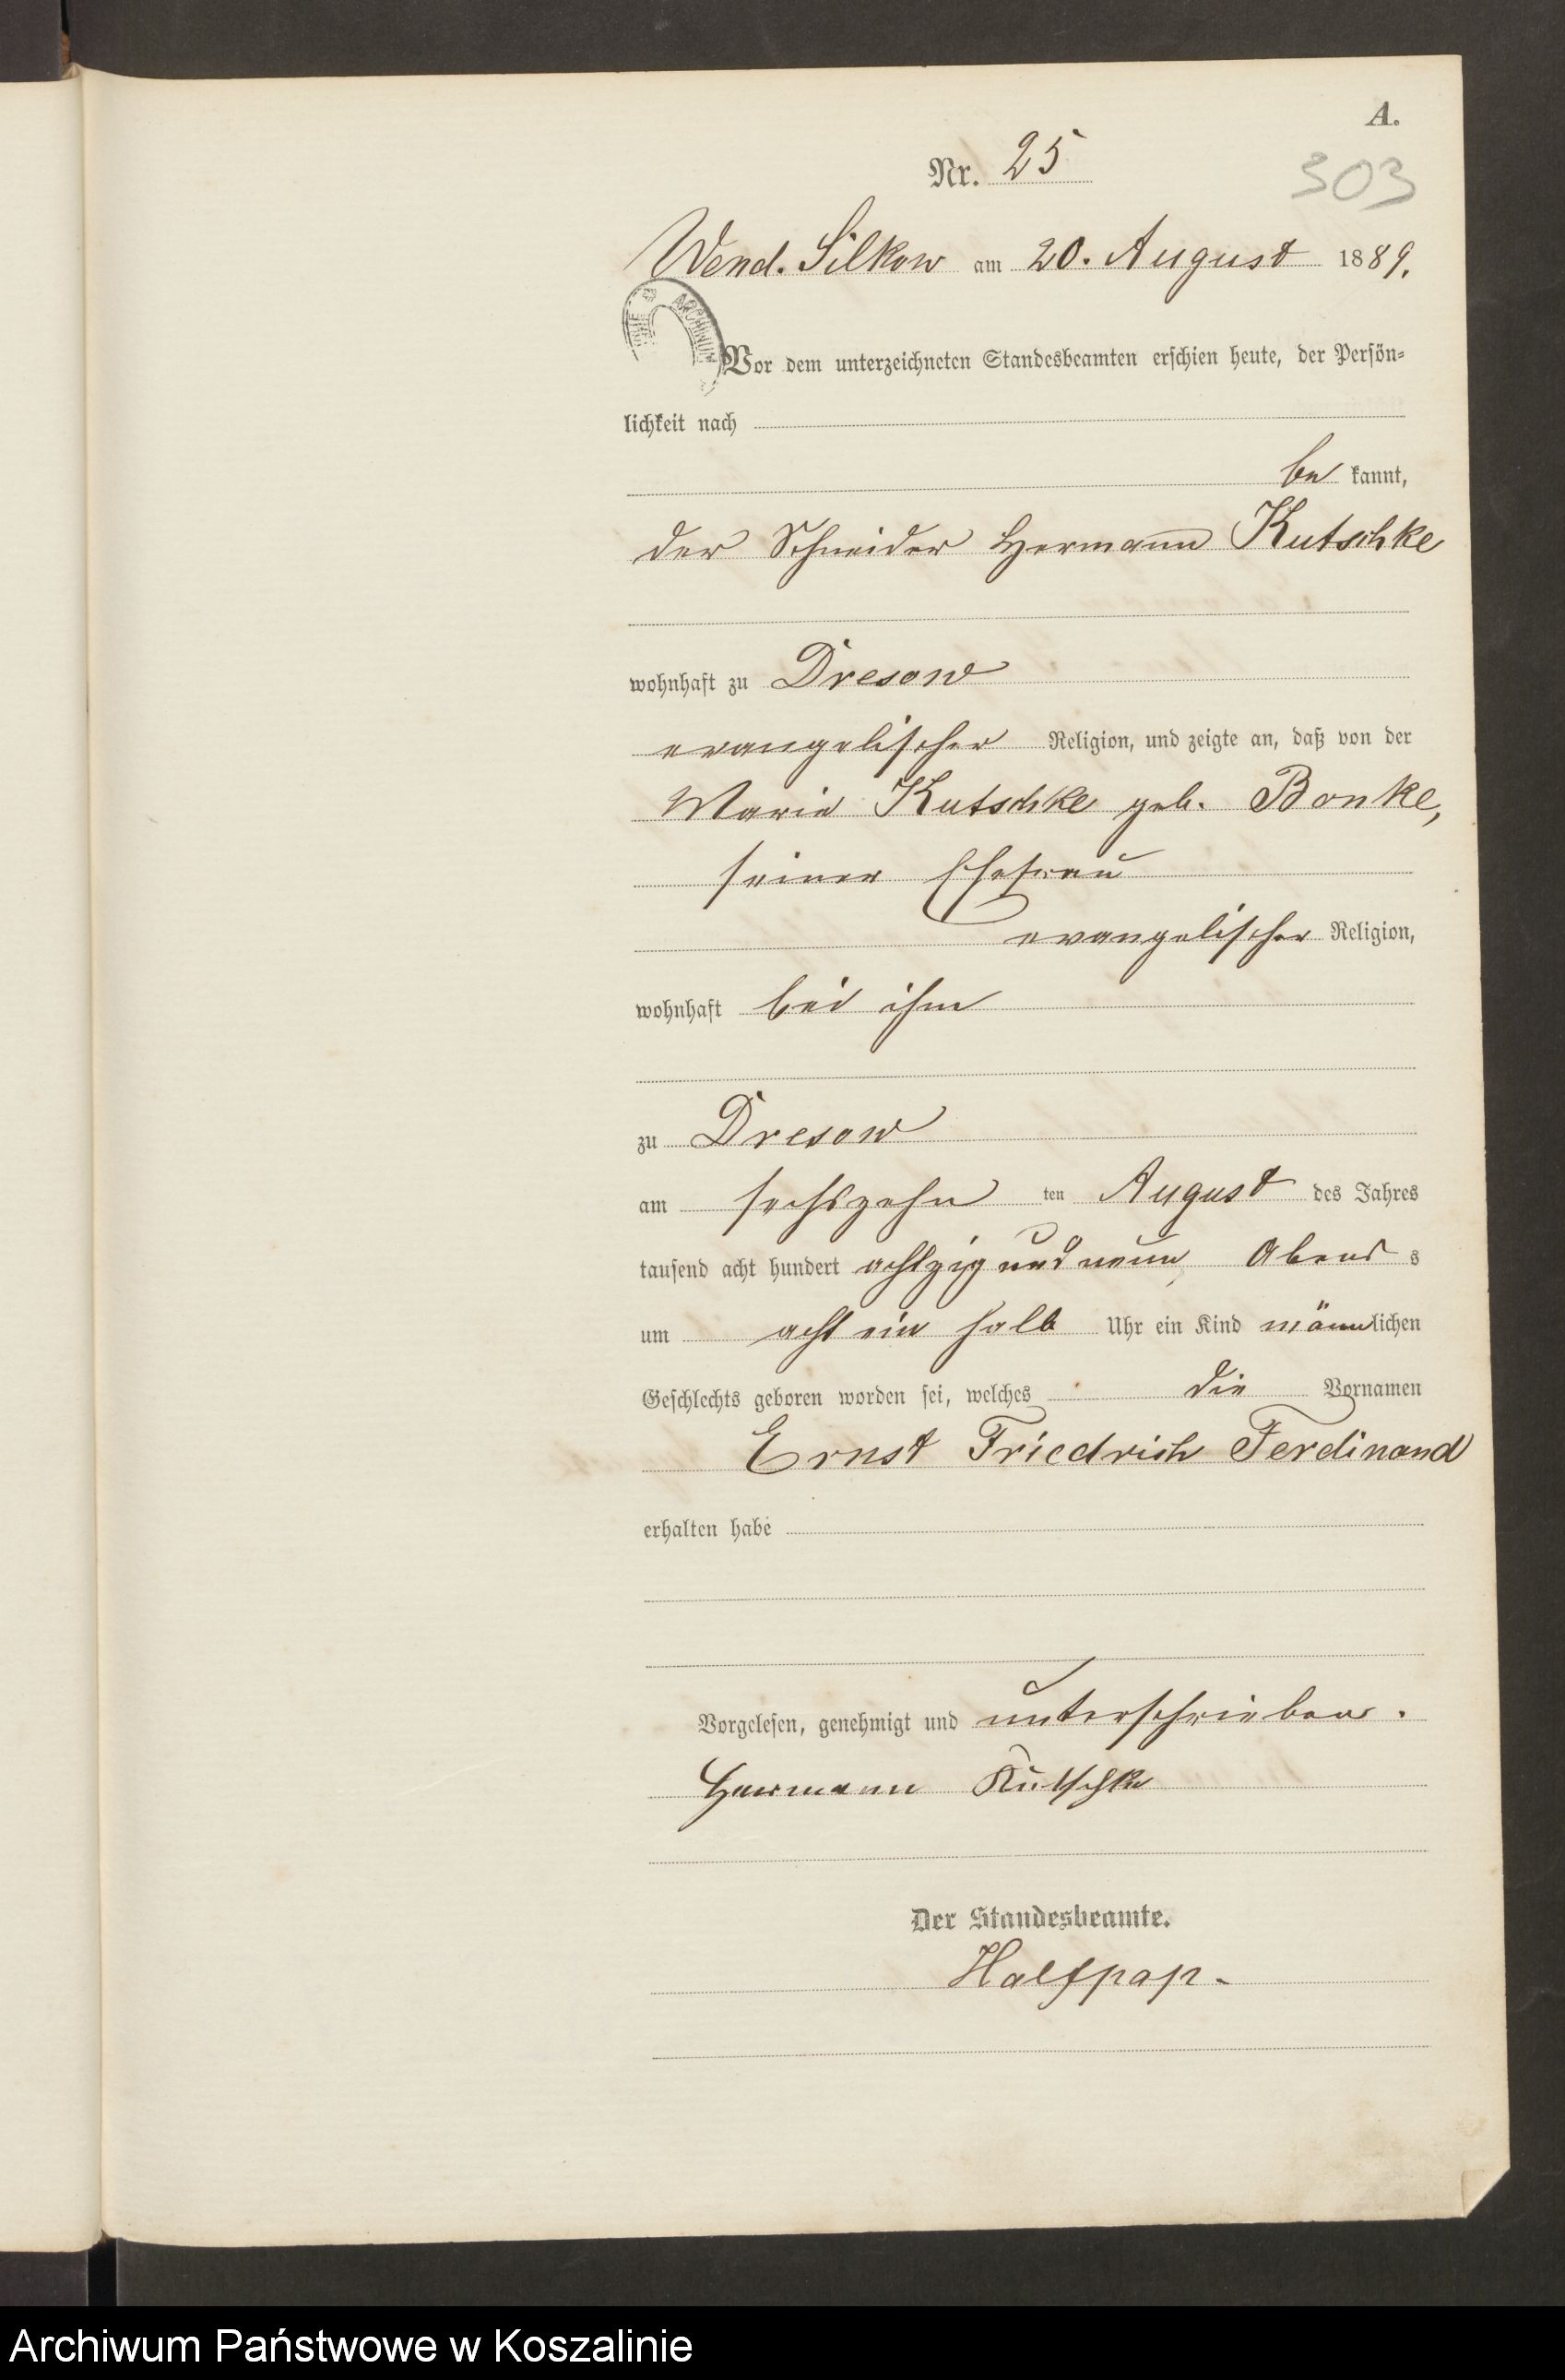 A.
Nr. 25
303
Wend. Silkow am 20. August 1889.
ARCHIWUM
Vor dem unterzeichneten Standesbeamten erschien heute, der Persön-
lichkeit nach
be kannt,
der Schneider Hermann Kutschke
wohnhaft zu Dresow
evangelischer Religion, und zeigte an, daß von der
Marie Kutschke geb. Bonke,
seiner Ehefrau
evangelischer Religion,
wohnhaft bei ihm
zu Dresow
am sechszehn ten August des Jahres
tausend acht hundert achtzig und neun Abend s
um acht ein halb Uhr ein Kind männlichen
Geschlechts geboren worden sei, welches die Vornamen
Ernst Friedrich Ferdinand
erhalten habe
Vorgelesen, genehmigt und unterschrieben.
Hermann Kutschke
Der Standesbeamte.
Halfpap.
Archiwum Państwowe w Koszalinie